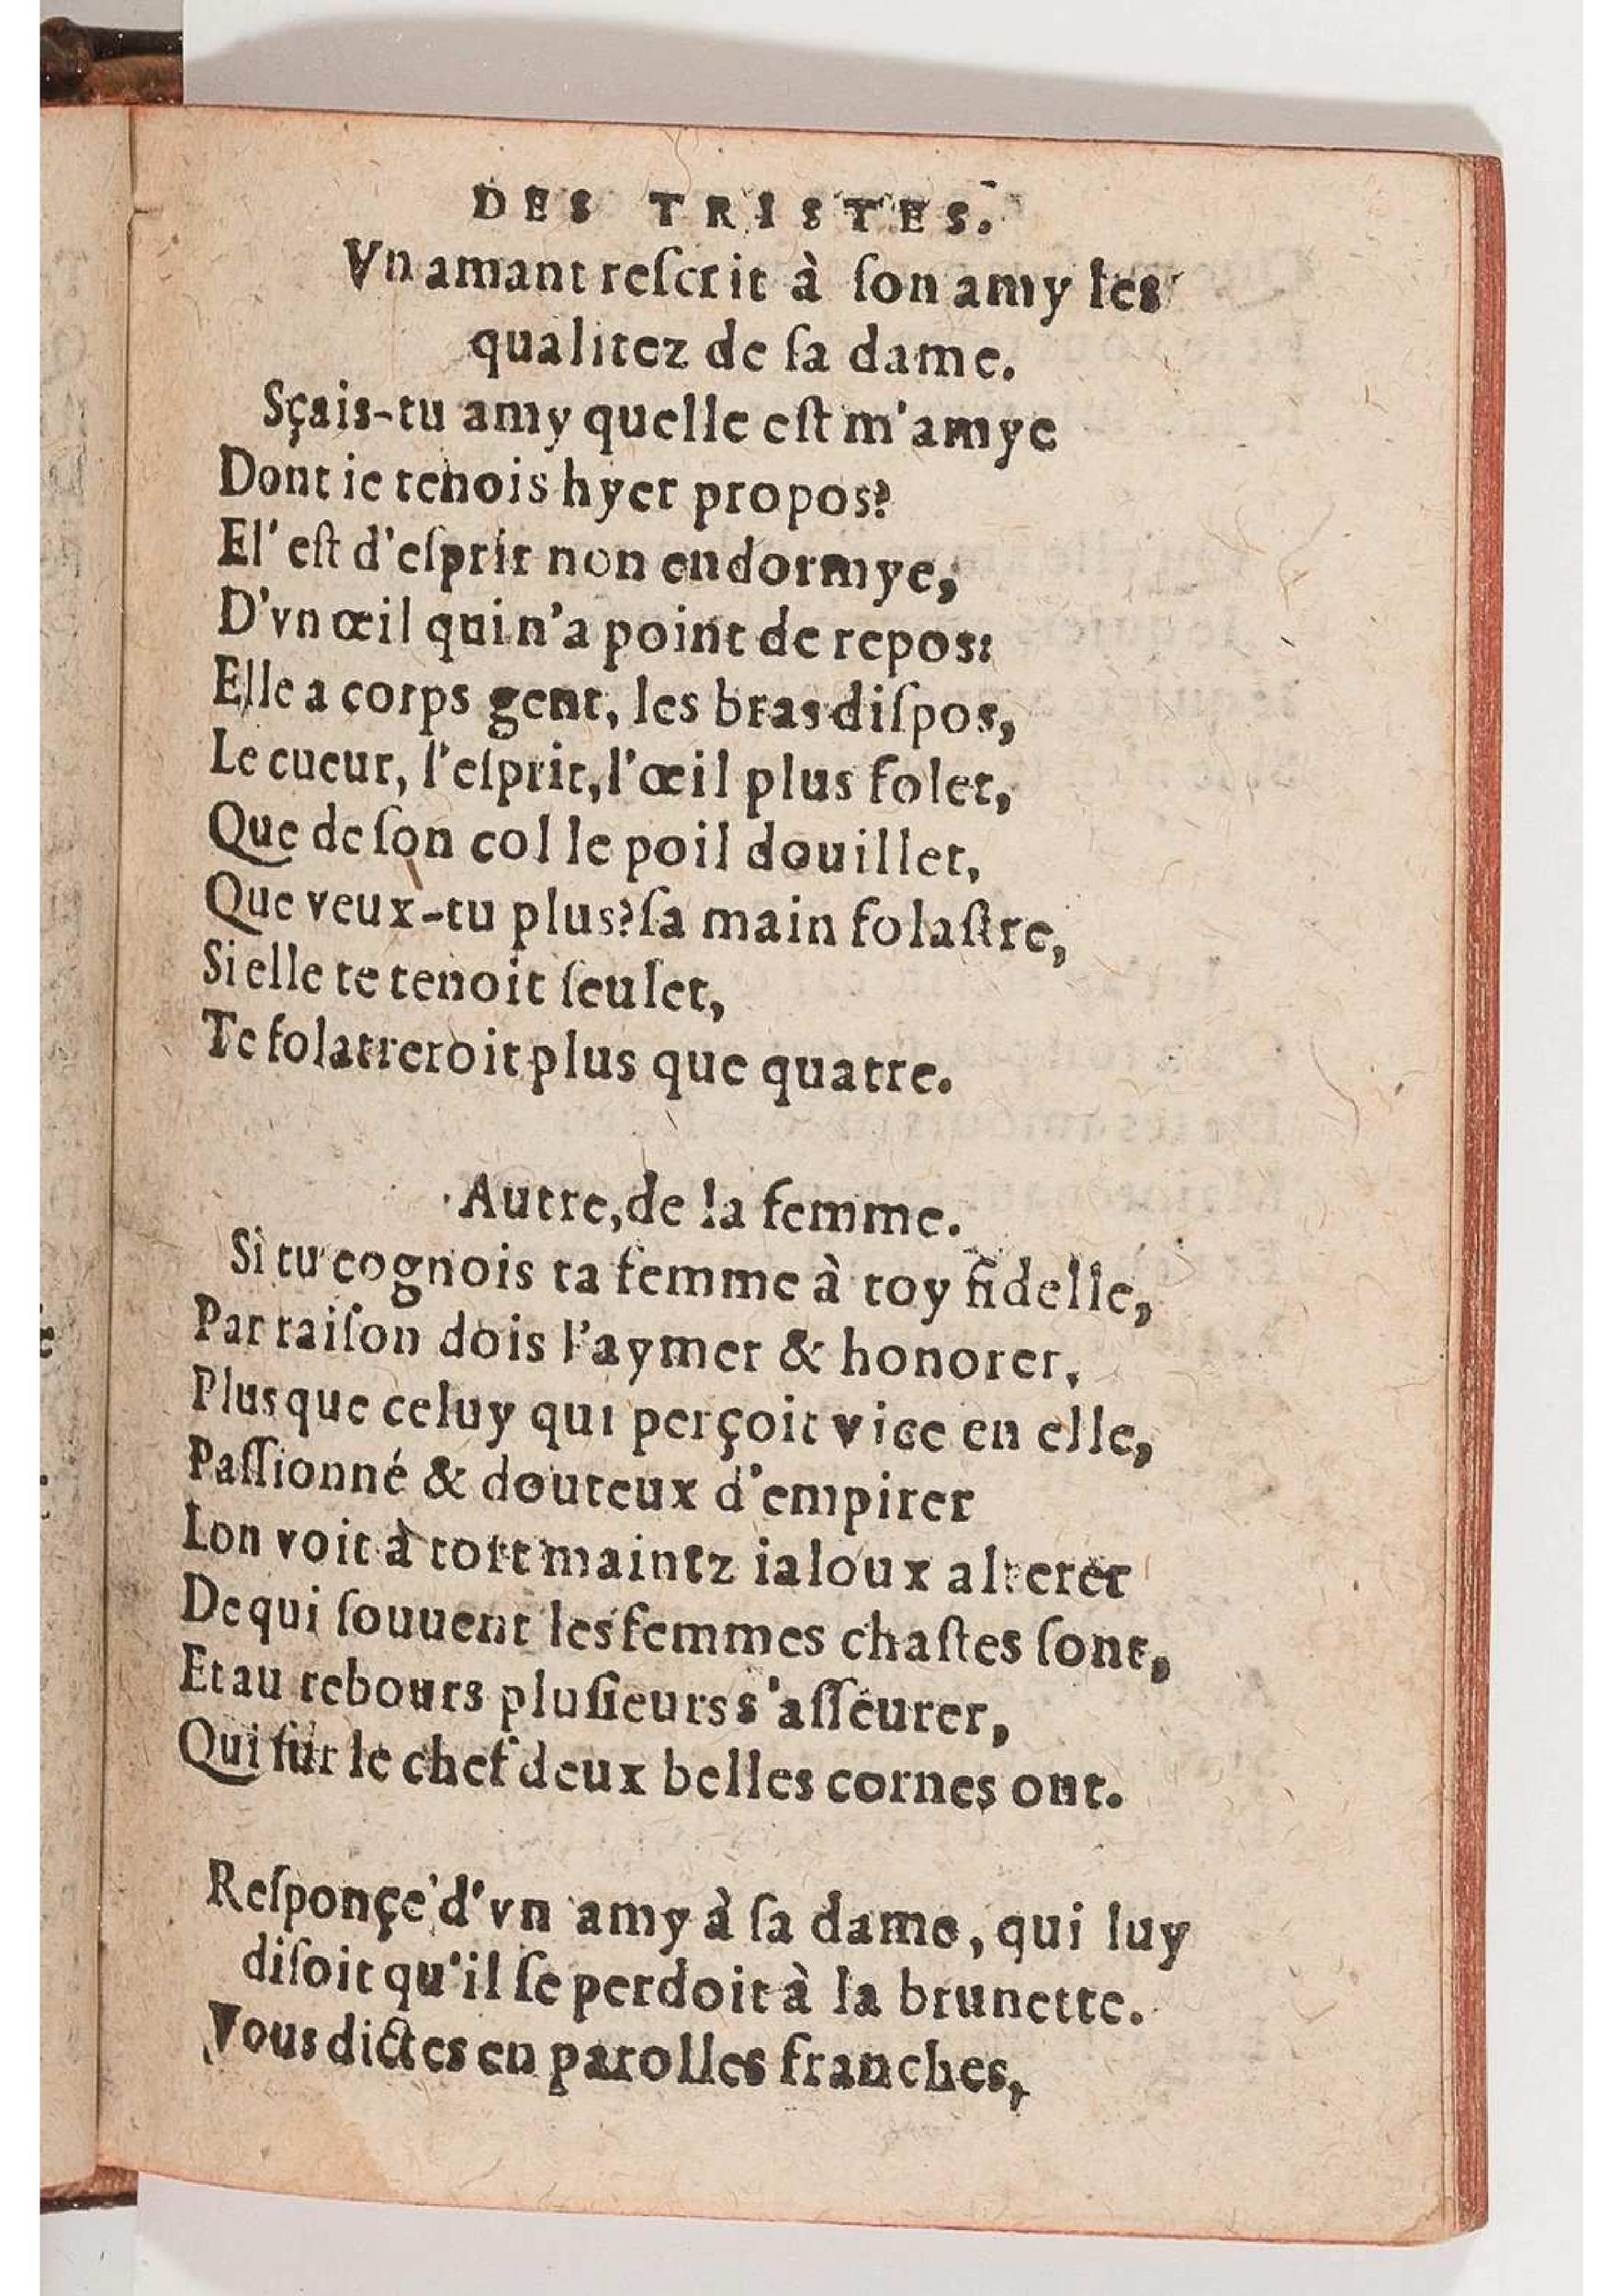 DES TRISTES.
Vn amant reſcrit à ſon amy les
qualitez de ſa dame.
Sçais-tu amy quelle eſt m'amye
Dont ie tenois hyer propos?
El' eſt d'eſprit non endormye,
D'vn œil qui n'a point de repos:
Elle a corps gent, les bras diſpos,
Le cueur, l'eſprit, l'œil plus folet,
Que de ſon col le poil douillet,
Que veux-tu plus? ſa main folaſtre,
Si elle te tenoit ſeulet,
Te folatreroit plus que quatre.
Autre, de la femme.
Si tu cognois ta femme à toy fidelle,
Par raiſon dois l'aymer & honorer,
Plus que celuy qui perçoit vice en elle,
Paſſionné & douteux d'empirer
Lon voit à tort maintz ialoux alterer
De qui ſouuent les femmes chaſtes ſont,
Et au rebours pluſieurs s'aſſeurer,
Qui ſur le chef deux belles cornes ont.
Reſponçe d'vn amy à ſa dame, qui luy
diſoit qu'il ſe perdoit à la brunette.
Vous dictes en parolles franches,